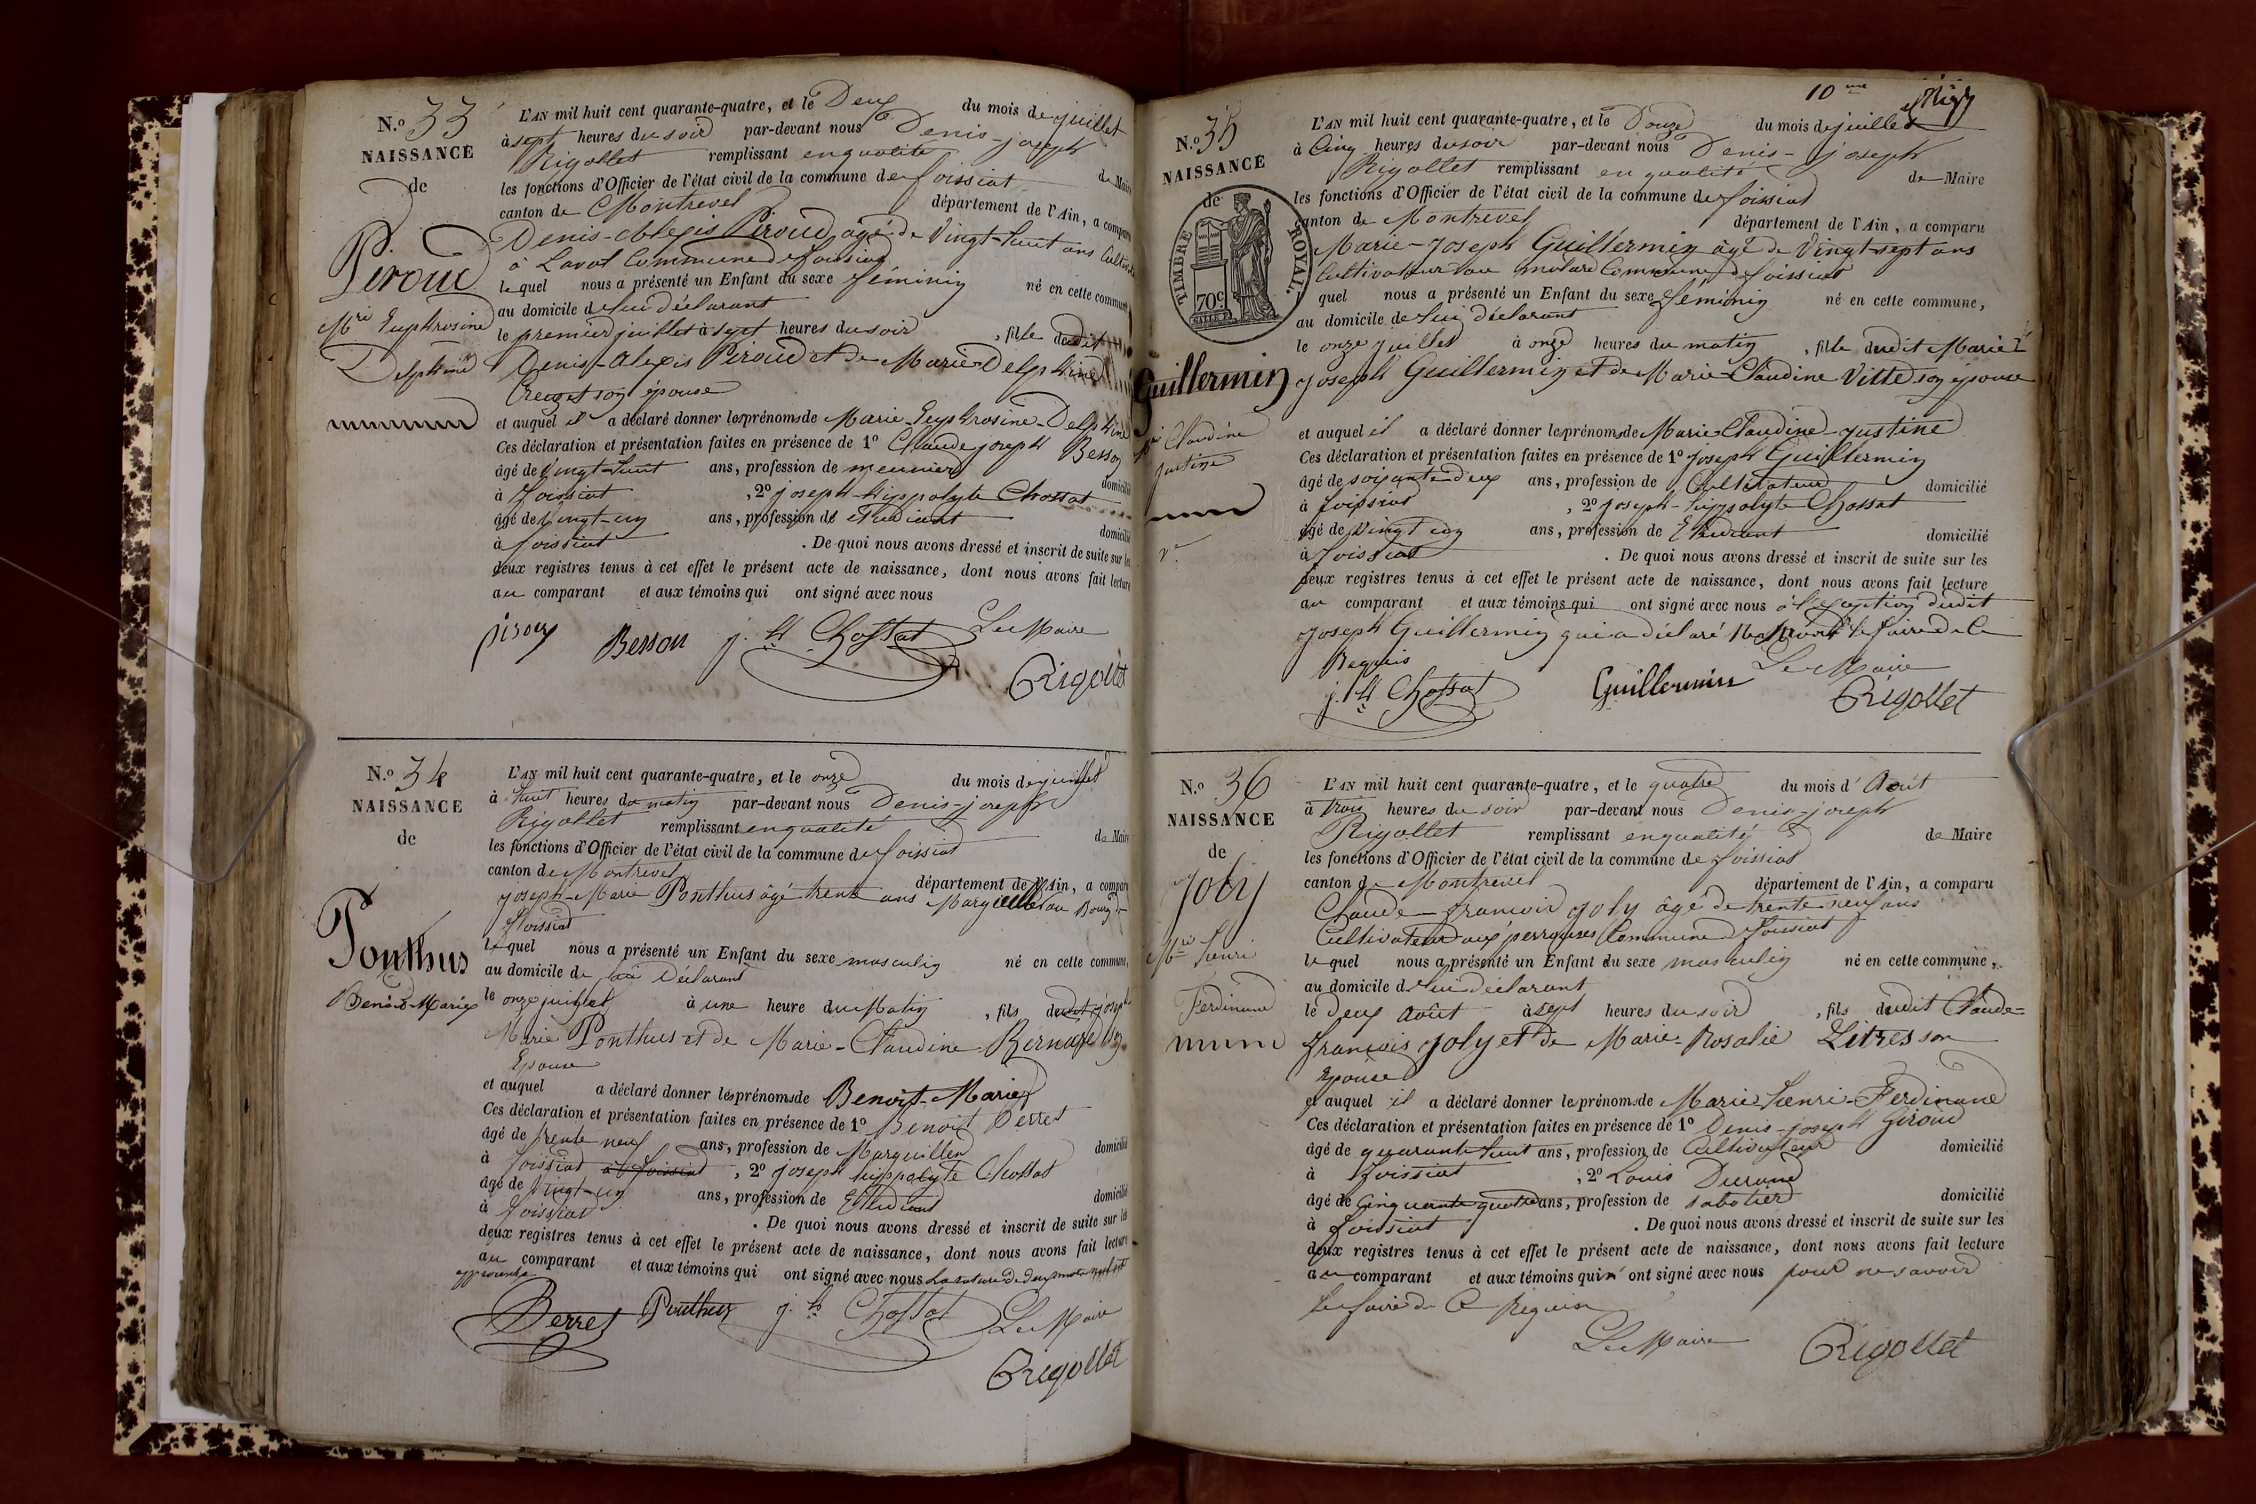 N.o 33
NAISSANCE
de
Piroud
Mie Euphrosine
Delphine
L'AN mil huit cent quarante-quatre, et le Deux du mois de juillet
à sept heures du soir par-devant nous Denis-joseph
Rigollet remplissant en qualité de Maire
les fonctions d'Officier de l'état civil de la commune de foissiat
canton de Montrevel département de l'Ain, a comparu
Denis-Alexis Piroud âgé de Vingt-huit ans Cultivateur
à Lavat Commune de foissiat
lequel nous a présenté un Enfant du sexe féminin né en cette commune
au domicile de lui déclarant
le premier juillet à sept heures du soir, fille dudit
Denis-Alexis Piroud et de Marie Delphine
Creuzet son épouse
et auquel il a déclaré donner les prénoms de Marie-Euphrosine-Delphine
Ces déclaration et présentation faites en présence de 1o Claude joseph Besson
âgé de Vingt-huit ans, profession de meunier domicilié
à foissiat, 2o joseph-hippolyte Chossat
âgé de Vingt-un ans, profession de Etudiant domicilié
à foissiat. De quoi nous avons dressé et inscrit de suite sur les
deux registres tenus à cet effet le présent acte de naissance, dont nous avons fait lecture
au comparant et aux témoins qui ont signé avec nous
piroux Besson j. h Chossat Le Maire
Rigollet
N.o 34
NAISSANCE
de
Ponthus
Benoit-Marie
L'AN mil huit cent quarante-quatre, et le onze du mois de juillet
à huit heures du matin par-devant nous Denis-joseph
Rigollet remplissant en qualité de Maire
les fonctions d'Officier de l'état civil de la commune de foissiat
canton de Montrevel département de l'Ain, a comparu
joseph-Marie Ponthus âgé trente ans Marguiller au Bourg de
foissiat
lequel nous a présenté un Enfant du sexe masculin né en cette commune,
au domicile de lui Déclarant
le onze juillet à une heure du Matin, fils dudit joseph
Marie Ponthus et de Marie-Claudine Bernard son
Epouse
et auquel a déclaré donner les prénoms de Benoit-Marie
Ces déclaration et présentation faites en présence de 1o Benoit Perret
âgé de trente neuf ans, profession de Marguiller domicilié
à foissiat à foissiat, 2o joseph hippolyte Chossat
âgé de vingt-un ans, profession de Etudiant domicilié
à foissiat. De quoi nous avons dressé et inscrit de suite sur les
deux registres tenus à cet effet le présent acte de naissance, dont nous avons fait lecture
au comparant et aux témoins qui ont signé avec nous La rature de deux mots nuls est
approuvée
Perret Ponthus j. h Chossat Le Maire
Rigollet
10me
N.o 35
NAISSANCE
de
TIMBRE ROYAL.
70c
Guillermin
Mie Claudine
justine
L'AN mil huit cent quarante-quatre, et le Douze du mois de juillet
à Cinq heures du soir par-devant nous Denis-joseph
Rigollet remplissant en qualité de Maire
les fonctions d'Officier de l'état civil de la commune de foissiat
canton de Montrevel département de l'Ain, a comparu
Marie-joseph Guillermin âgé de Vingt-sept ans
Cultivateur au molard Commune de foissiat
quel nous a présenté un Enfant du sexe féminin né en cette commune,
au domicile de lui déclarant
le onze juillet à onze heures du matin, fille dudit Marie
joseph Guillermin et de Marie-Claudine Vitte son épouse
et auquel il a déclaré donner les prénoms de Marie-Claudine-justine
Ces déclaration et présentation faites en présence de 1o joseph Guillermin
âgé de soixante-deux ans, profession de Cultivateur domicilié
à foissiat, 2o joseph-hippolyte Chossat
âgé de vingt un ans, profession de Etudiant domicilié
à foissiat. De quoi nous avons dressé et inscrit de suite sur les
deux registres tenus à cet effet le présent acte de naissance, dont nous avons fait lecture
au comparant et aux témoins qui ont signé avec nous à l'exception dudit
joseph Guillermin qui a déclaré ne savoir le faire de Ce
Requis
j. h Chossat Guillermin Le Maire
Rigollet
N.o 36
NAISSANCE
de
joly
Mie henri
Ferdinand
L'AN mil huit cent quarante-quatre, et le quatre du mois d'Août
à trois heures du soir par-devant nous Denis-joseph
Rigollet remplissant en qualité de Maire
les fonctions d'Officier de l'état civil de la commune de foissiat
canton de Montrevel département de l'Ain, a comparu
Claude-francois joly âgé de trente-neuf ans
Cultivateur aux perrouses Commune de foissiat
lequel nous a présenté un Enfant du sexe masculin né en cette commune,
au domicile de lui déclarant
le deux Août à sept heures du soir, fils dudit Claude-
francois joly et de Marie-Rosalie Litres son
Epouse
et auquel il a déclaré donner les prénoms de Marie-henri-Ferdinand
Ces déclaration et présentation faites en présence de 1o Denis-joseph Giroud
âgé de quarante huit ans, profession de Cultivateur domicilié
à foissiat, 2o Louis Durand
âgé de Cinquante quatre ans, profession de sabotier domicilié
à foissiat. De quoi nous avons dressé et inscrit de suite sur les
deux registres tenus à cet effet le présent acte de naissance, dont nous avons fait lecture
au comparant et aux témoins qui n'ont signé avec nous pour ne savoir
le faire de Ce Requis
Le Maire Rigollet